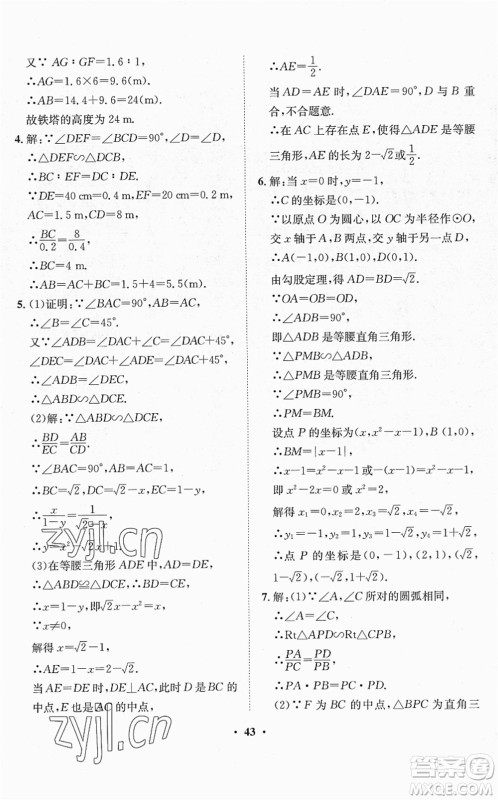 又∵AG∶GF=1.6∶1,
∴AG=1.6×6=9.6(m).
∴AB=14.4+9.6=24(m).
故铁塔的高度为 24 m.
4. 解:∵∠DEF=∠BCD=90°,∠D=∠D,
∴△DEF∽△DCB.
∴BC∶EF=DC∶DE.
∵DE=40 cm=0.4 m,EF=20 cm=0.2 m,
AC=1.5 m,CD=8 m,
∴BC/0.2=8/0.4.
∴BC=4 m.
∴AB=AC+BC=1.5+4=5.5(m).
5. (1)证明:∵∠BAC=90°,AB=AC,
∴∠B=∠C=45°.
又∵∠ADB=∠DAC+∠C=∠DAC+45°,
∠DEC=∠DAC+∠ADE=∠DAC+45°,
∴∠ADB=∠DEC,
∴△ABD∽△DCE.
(2)解:∵△ABD∽△DCE,
∴BD/EC=AB/CD.
∵∠BAC=90°,AB=AC=1,
∴BC=√2,DC=√2-x,EC=1-y,
∴x/(1-y)=1/(√2-x),
∴y=x²-√2x+1.
(3)在等腰三角形 ADE 中,AD=DE,
∴△ABD≌△DCE,
∴x=1-y,即x-√2x+x²=0.
∵x≠0,
解得 x=√2-1,
∴AE=1-x=2-√2.
当 AE=DE 时,DE⊥AC,此时 D 是 BC 的中点,E 也是 AC 的中点,
∴AE=1/2.
当 AD=AE 时,∠DAE=90°,D 与 B 重
合,不合题意.
∴在 AC 上存在点 E,使得△ADE 是等腰
三角形,AE 的长为 2-√2或1/2.
6. 解:当 x=0 时,y=-1,
∴C 点坐标为(0,-1).
∵以原点 O 为圆心,以 OC 为半径作⊙O,
交 x 轴于 A,B 两点,交 y 轴于另一点 D,
∴A(-1,0),B(1,0),D(0,1).
由勾股定理,得 AB²=AD²+BD².
∵OA=OB=OD,
∴∠ADB=90°,
即△ADB 是等腰直角三角形.
∵△PMB∽△ADB,
∴△PMB 是等腰直角三角形.
∵∠PMB=90°,
∴PM=BM.
设点 P 的坐标为(x,x²-1),B(1,0),
∴BM=|x-1|,
∴x-1=x²-1或1-x=x²-1,
即 x²-x=0 或 x²+x-2=0,
解得 x₁=0,x₂=1,x₃=√2,x₄=-√2,
∴y₁=-1,y₂=0,y₃=1,y₄=1,
∴点 P 的坐标是(0,-1),(1,0),
(√2,1)或(-√2,1).
7. 解:(1)∵∠A,∠C 所对的圆弧相同,
∴∠A=∠C,
∴Rt△APD∽Rt△CPB,
∴PA/PC=PD/PB,
∴PA·PB=PC·PD.
(2)∵F 为 BC 的中点,△BPC 为直角三
• 43 •
zyjl.cn
答案圈
MXQE.COM